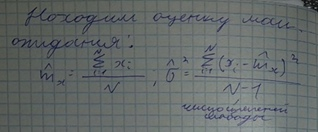 Находим оценку мат.
ожидания:
m̂ₓ = Σᵢ₌₁ᴺ xᵢ / N , σ̂² = Σᵢ₌₁ᴺ (xᵢ - m̂ₓ)² / N-1
число степеней
свободы